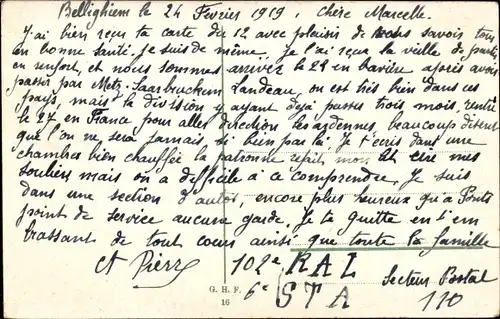 Bellighiem le 24 Février 1919, Chère Marcelle.
J'ai bien reçu ta carte du 12 avec plaisir de vous savoir tous
en bonne santé. Je suis de même. Je l'ai reçu la veille de partir
en renfort, et nous sommes arrivés le 22 en Bavière après avoir
passer par Metz, Saarbrucken Landeau, on est très bien dans ces
pays, mais la division y ayant déjà passés trois mois, rentre
le 27 en France pour aller direction les ardennes, beaucoup disent
que l'on ne sera jamais si bien par là. Je t'écris dans une
chambre bien chauffée la patronne et cire mes
souliers mais on a difficile à ce comprendre. Je suis
dans une section d'autos, encore plus heureux qu'à
point de service aucune garde. Je te quitte en t'em
brassant de tout cœur ainsi que toute la famille
Pierre 102e RAL
6e STA Secteur Postal
110
G. H. F.
16